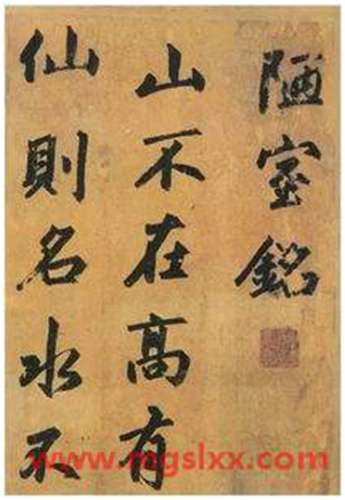 陋室銘
山不在高有
仙則名水不
www.mgslxx.com